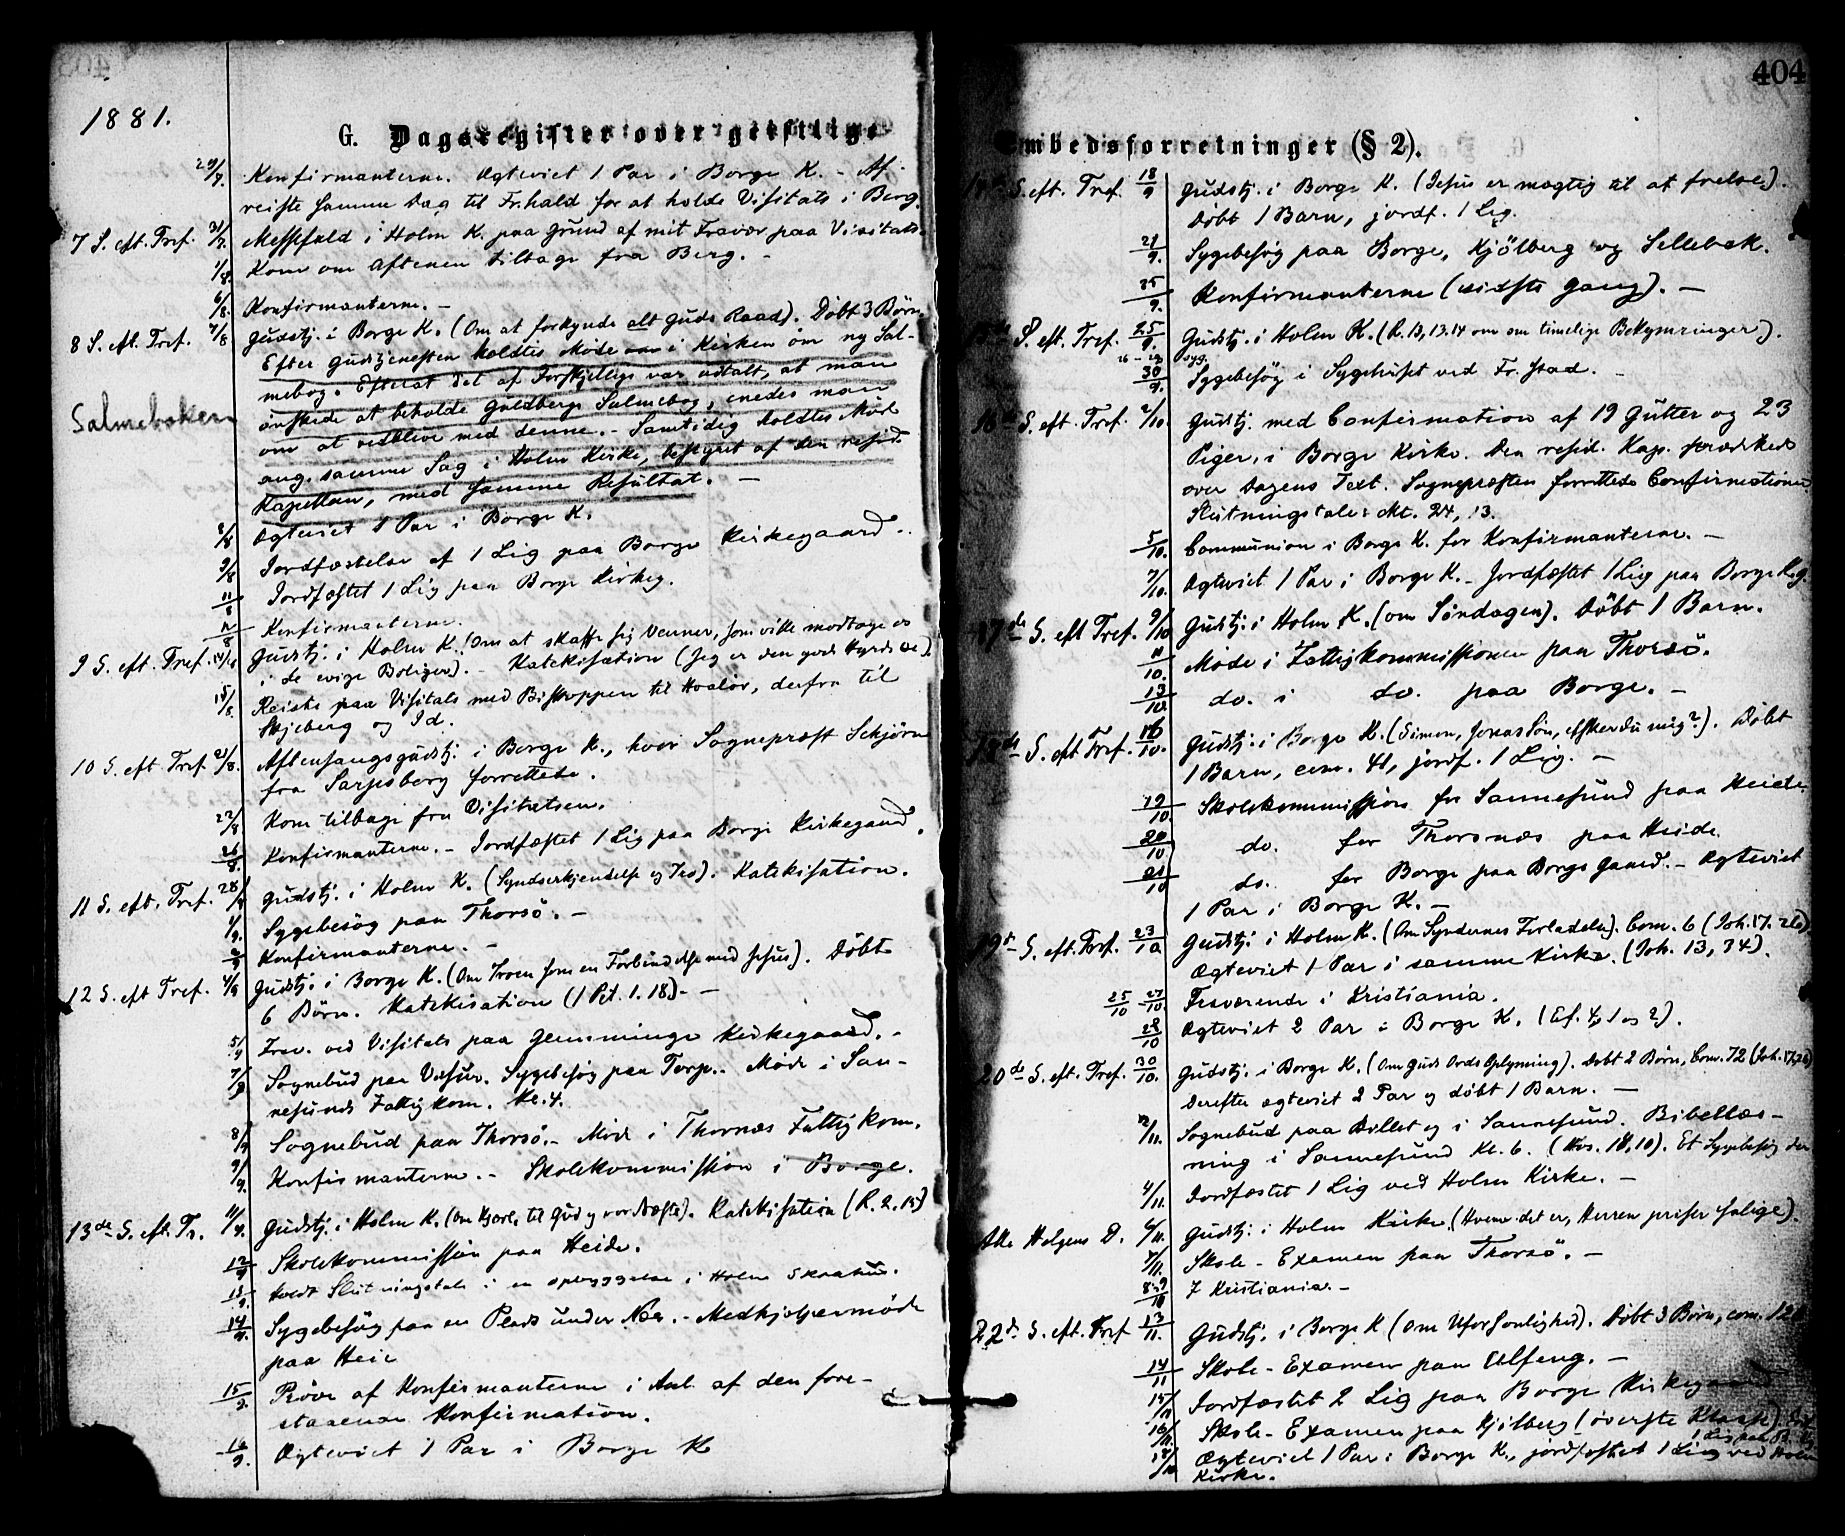 404
1881.
G. Dagsregister over geistlige Embedsforretninger (§ 2).
29/7. Konfirmanterne. Ægteviet 1 Par i Borge K. - Af-
reiste samme Dag til Fr.hald for at holde Visitats i Berg.
7 S. eft. Tref. 31/7. Messefald i Holm K. paa Grund af mit Fravær paa Visitats.
1/8. Kom om Aftenen tilbage fra Berg. -
6/8. Konfirmanterne. -
8 S. eft. Tref. 7/8 Gudstj. i Borge K. (Om at forkynde alt Guds Raad). Döbt 3 Börn.
Efter Gudstjenesten holdtes Möde i Kirken om ny Sal-
mebog. Efterat det af Forskjellige var udtalt, at man
önskede at beholde Guldbergs Salmebog, enedes man
Salmeboken
om at vedblive med denne. - Samtidig holdtes Möde
ang. samme Sag i Holm Kirke, bestyret af den resid.
Kapellan, med samme Resultat. -
8/8 Ægteviet 1 Par i Borge K.
9/8 Jordfæstelse af 1 Lig paa Borge Kirkegaard.
11/8 Jordfæstet 1 Lig paa Borge Kirkeg.
12/8 Konfirmanterne.
9 S. eft. Tref. 14/8 Gudstj. i Holm K. (Om at skaffe sig Venner, som ville modtage os
i de evige Boliger). - Katekisation (Jeg er den gode Hyrde)
15/8. Reiste paa Visitats med Biskoppen til Hvalör, derfra til
Skjeberg og Id.
10 S. eft. Tref. 21/8. Aftensangsgudstj. i Borge K., hvor Sognepræst Schjörn
fra Sarpsborg forrettede.
22/8 Kom tilbage fra Visitatsen.
26/8 Konfirmanterne. - Jordfæstet 1 Lig paa Borge Kirkegaard.
11 S. eft. Tref. 28/8 Gudstj. i Holm K. (Syndserkjendelse og Tro). Katekisation.
1/9. Sygebesög paa Thorsö. -
2/9 Konfirmanterne. -
12 S. eft Tref. 4/9 Gudstj. i Borge K. (Om Troen som en Forbindelse med Jesus). Döbt
6 Börn. Katekisation (1 Pet. 1. 18). -
5/9 Frav. ved Visitats paa Glemminge Kirkegaard. -
7/9 Sognebud paa . Sygebesög paa Torp. - Möde i San-
nesunds Fattigkom. Kl. 4.
8/9 Sognebud paa Thorsö. - Möde i Thornæs Fattigkom.
9/9. Konfirmanterne. - Skolekommission i Borge.
13de S. eft. Tr. 11/9. Gudstj. i Holm K. (Om Kjærl. til Gud og vor Næste). Katekisation (R. 2. 15)
12/9 Skolekommission paa Heide.
13/9. Holdt Slutningstale i en opbyggelse i Holm
14/9. Sygebesög paa en Plads under Nær. - Medhjelpermöde
paa Heie
15/9. Pröve af Konfirmanterne i Anl. af den fore-
staaende Konfirmation.
16/9. Ægteviet 1 Par i Borge K.
14de S. eft. Tref. 18/9 Gudstj. i Borge K. (Jesus er mægtig til at frelse).
Döbt 1 Barn, jordf. 1 Lig.
21/9. Sygebesög paa Borge, Kjölberg og Sellebak.
25/9. Konfirmanterne (sidste Gang). -
15de S. eft. Tref. 25/9. Gudstj. i Holm K. (R. 13, 13.14 om om timelige Bekymringer).
26 - 29 syg.
30/9. Sygebesög i Sygehuset ved Fr. stad. -
16de S. eft. Tref 2/10. Gudstj. med Confirmation af 19 Gutter og 23
Piger, i Borge Kirke. Den resid. Kap. prædikede
over Dagens Text. Sognepræsten forrettede Confirmationen
Slutningstale: Mt. 24, 13.
5/10. Communion i Borge K. for Konfirmanterne. -
7/10. Ægteviet 1 Par i Borge K. - Jordfæstet 1 Lig paa Borge K.g.
17de S. eft Tref. 9/10 Gudstj. i Holm K. (om Söndagen). Döbt 1 Barn.
11/10. Möde i Fattigkommissionen paa Thorsö.
13/10. do. i do. paa Borge. -
18de S. eft Tref. 16/10. Gudstj. i Borge K. (Simon, Jonas Sön, elsker du mig?). Döbt
1 Barn, com. 41, jordf. 1 Lig. -
19/10 Skolekommission for Sannesund paa Heide.
20/10 do. for Thorsnæs paa Heide
21/10 do. for Borge paa Borge Gaard. - Ægteviet
1 Par i Borge K. -
19de S. eft. Tref. 23/10 Gudstj. i Holm K. (Om Syndernes Forladelse). Com. 6 (Joh. 17. 26)
Ægteviet 1 Par i samme Kirke. (Joh. 13, 34).
25/10 - 27/10. Fraværende i Kristiania.
28/10 Ægteviet 2 Par i Borge K. (Ef. 4, 1 og 2).
20de S. eft. Tref. 30/10. Gudstj. i Borge K. (Om Guds Ords Oplysning). Döbt 2 Börn, Com. 72 (Joh. 17.26)
Derefter ægteviet 2 Par og döbt 1 Barn. -
2/11. Sognebud paa og i Sannesund. Bibellæs-
ning i Sannesund Kl. 6. Et Sygebesög der
4/11. Jordfæstet 1 Lig ved Holm Kirke. -
Alle Helgens D. 6/11. Gudstj. i Holm Kirke. (Hvem det er, Herren priser salige).
7/11. Skole-Examen paa Thorsö. -
8-9/11 I Kristiania. -
22de S. eft. Tref 13/11. Gudstj. i Borge K (Om Uforsonlighed). Döbt 3 Börn, com. 12
14/11 Skole-Examen paa Ulfeng. -
15/11 Jordfæstet 2 Lig paa Borge Kirkegaard
16/11. Skole-Examen paa Kjölberg (överste Klasse).
1 Lig paa B. Kg.
18/11 Ægteviet 1 Par i Borge K., jordfæstet 1 Lig ved Holm
Kirke.